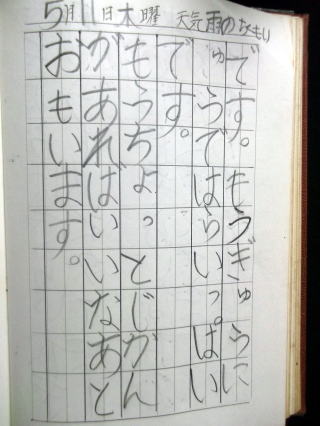 5月11日木曜 天気雨のちくもり
です。もうぎゅうに
ゅうではらいっぱい
です。
もうちょっとじかん
があればいいなあと
おもいます。